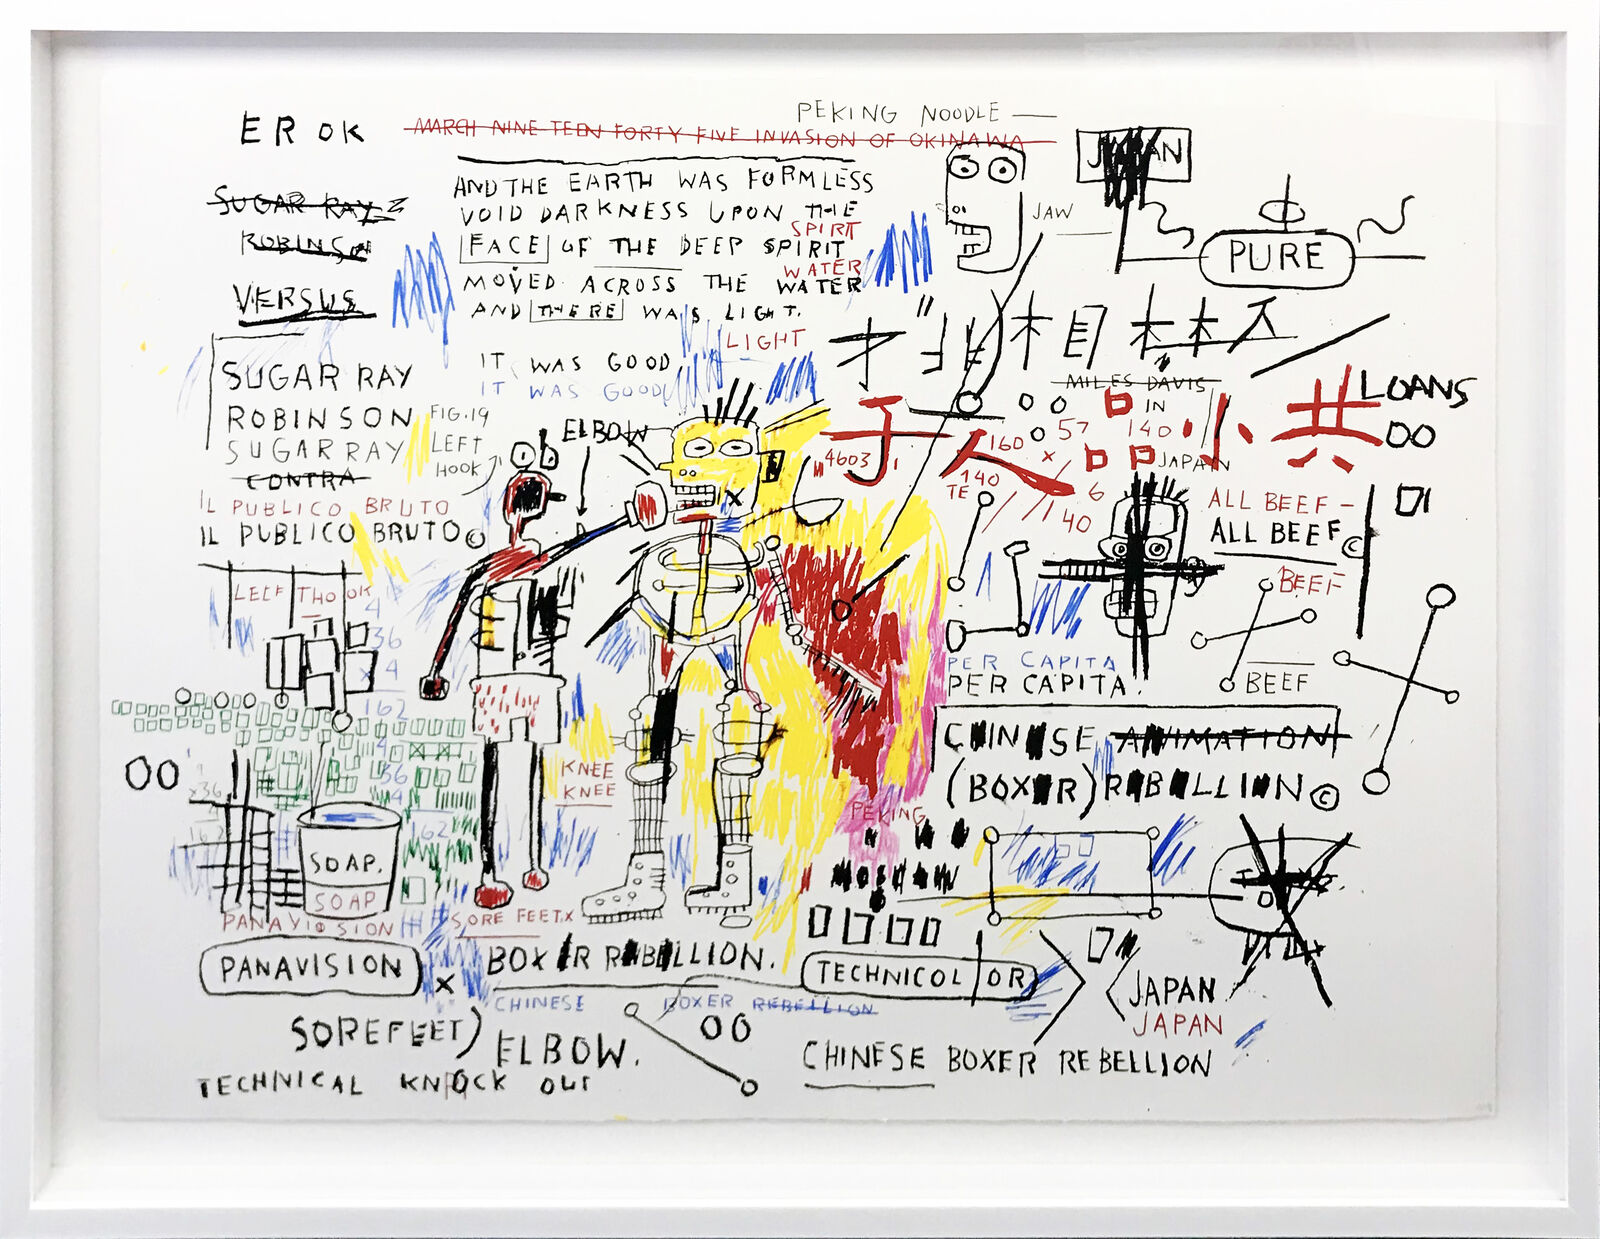 PEKING NOODLE —
EROK
MARCH NINE TEEN FORTY FIVE INVASION OF OKINAWA
JAPAN
SUGAR RAY
ROBINSON
VERSUS
AND THE EARTH WAS FORMLESS
VOID DARKNESS UPON THE
SPIRIT
FACE OF THE DEEP SPIRIT
WATER
MOVED ACROSS THE WATER
AND THERE WAS LIGHT.
LIGHT
IT WAS GOOD
IT WAS GOOD
JAW
PURE
SUGAR RAY
ROBINSON
SUGAR RAY
CONTRA
IL PUBLICO BRUTO
IL PUBLICO BRUTO©
FIG. 19
LEFT
HOOK
ELBOW
MILES DAVIS
IN
LOANS
OO
人 品 小 共
160
57
140
4603
JAPAN
140
TE
6
140
ALL BEEF –
ALL BEEF©
BEEF
BEEF
PER CAPITA
PER CAPITA.
LEEF THOOK
4
36
x 4
162
OO
4
36
4
x36
162
162
KNEE
KNEE
CHINESE ANIMATION
(BOXER) REBELLION©
PEKING
SOAP.
SOAP
PANAVISION
PANAVISION
x
SORE FEET x
BOXER REBELLION.
CHINESE BOXER REBELLION
TECHNICOLOR
JAPAN
JAPAN
SOREFEET)
ELBOW.
OO
CHINESE BOXER REBELLION
TECHNICAL KNOCK OUT